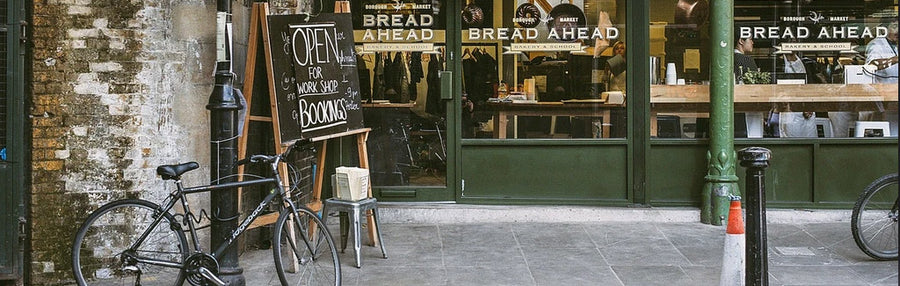 OPEN
FOR
WORK SHOP
BOOKINGS
BOROUGH MARKET
BREAD
AHEAD
BAKERY & SCHOOL
BOROUGH MARKET
BREAD AHEAD
BAKERY & SCHOOL
BOROUGH MARKET
BREAD AHEAD
BAKERY & SCHOOL